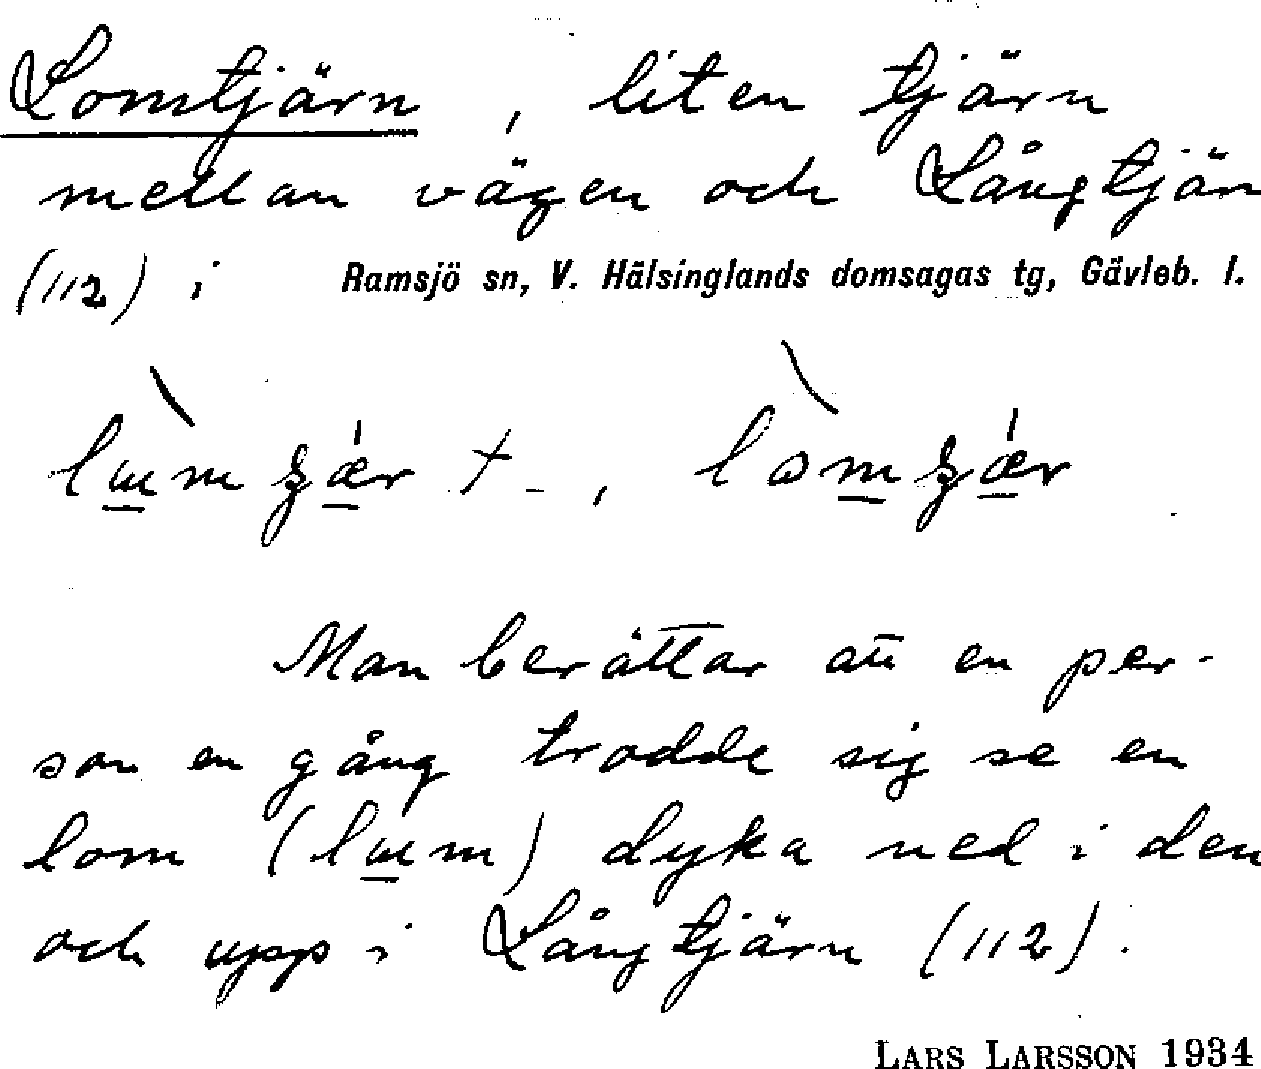 Lomtjärn, liten tjärn
mellan vägen och Långtjärn
(112) i Ramsjö sn, V. Hälsinglands domsagas tg, Gävleb. l.
Man berättar att en per-
son en gång trodde sig se en
lom (lɯm) dyka ned i den
och upp i Långtjärn (112).
LARS LARSSON 1934